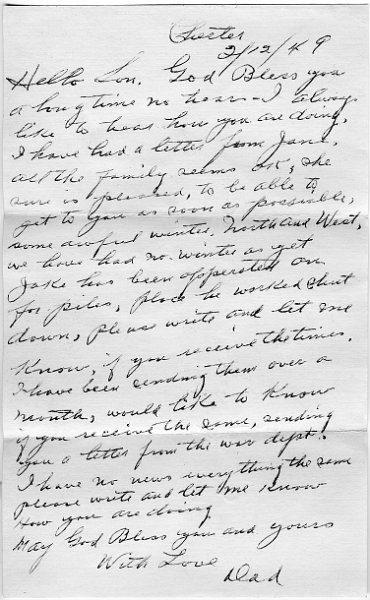 Chester
2/12/49
Hello Son. God Bless you
a long time no hear - I always
like to hear how you are doing,
I have had a letter from Jane,
all the family seems OK, she
sure is pleased, to be able to
get to you as soon as possiable,
some awful winter, North and West,
we have had no winter as yet
Jake has been opperated on
for piles, place he worked shut
down, please write and let me
Know, if you receive the times.
I have been sending them over a
month, would like to know
if you receive the same, sending
you a letter from the war dept.
I have no news everything the same
please write and let me know
How you are doing
May God Bless you and yours
With Love
Dad